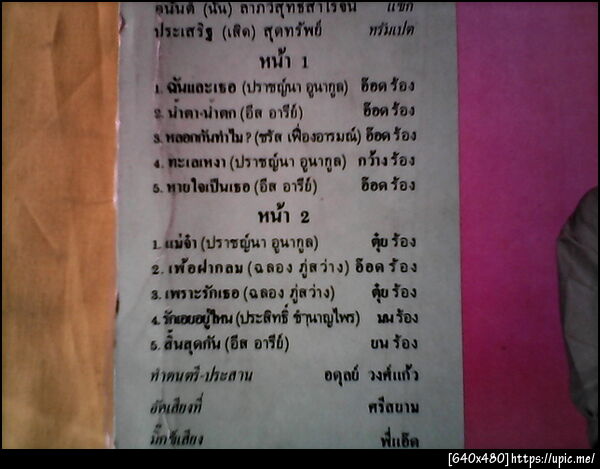 อนันต์ (นัน) ลาภวิสุทธิสาโรจน์ แซ็ก
ประเสริฐ (เสิด) สุดทรัพย์ ทรัมเปต
หน้า 1
1. ฉันและเธอ (ปราชญ์นา อูนากูล) อ๊อด ร้อง
2. น้ำตา-น้ำตก (อีส อารีย์) อ๊อด ร้อง
3. หลอกกันทำไม ? (ชรัส เฟื่องอารมณ์) อ๊อด ร้อง
4. ทะเลเหงา (ปราชญ์นา อูนากูล) กว้าง ร้อง
5. หายใจเป็นเธอ (อีส อารีย์) อ๊อด ร้อง
หน้า 2
1. แม่จ๋า (ปราชญ์นา อูนากูล) ตุ๋ย ร้อง
2. เพ้อฝากลม (ฉลอง ภู่สว่าง) อ๊อด ร้อง
3. เพราะรักเธอ (ฉลอง ภู่สว่าง) ตุ๋ย ร้อง
4. รักเอยอยู่ไหน (ประสิทธิ์ ชำนาญไพร) มน ร้อง
5. สิ้นสุดกัน (อีส อารีย์) ร้อง
ทำดนตรี-ประสาน อดุลย์ วงศ์แก้ว
อัดเสียงที่ ศรีสยาม
มิ๊กซ์เสียง พี่แอ๊ด
[640x480]https://upic.me/